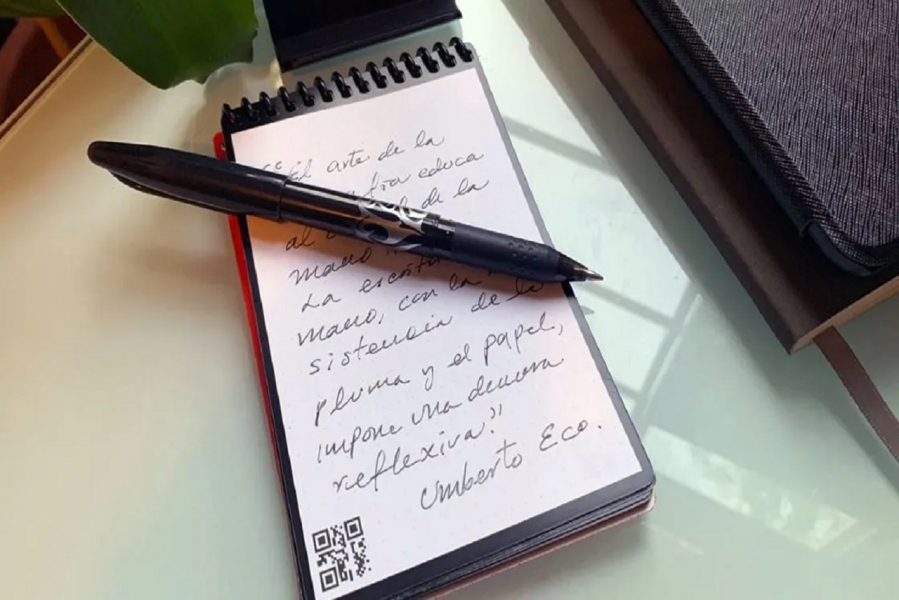 “El arte de la
educa
al de la
mano
La
mano, con la
sistencia de la
pluma y el papel,
impone una demora
reflexiva”
Umberto Eco.